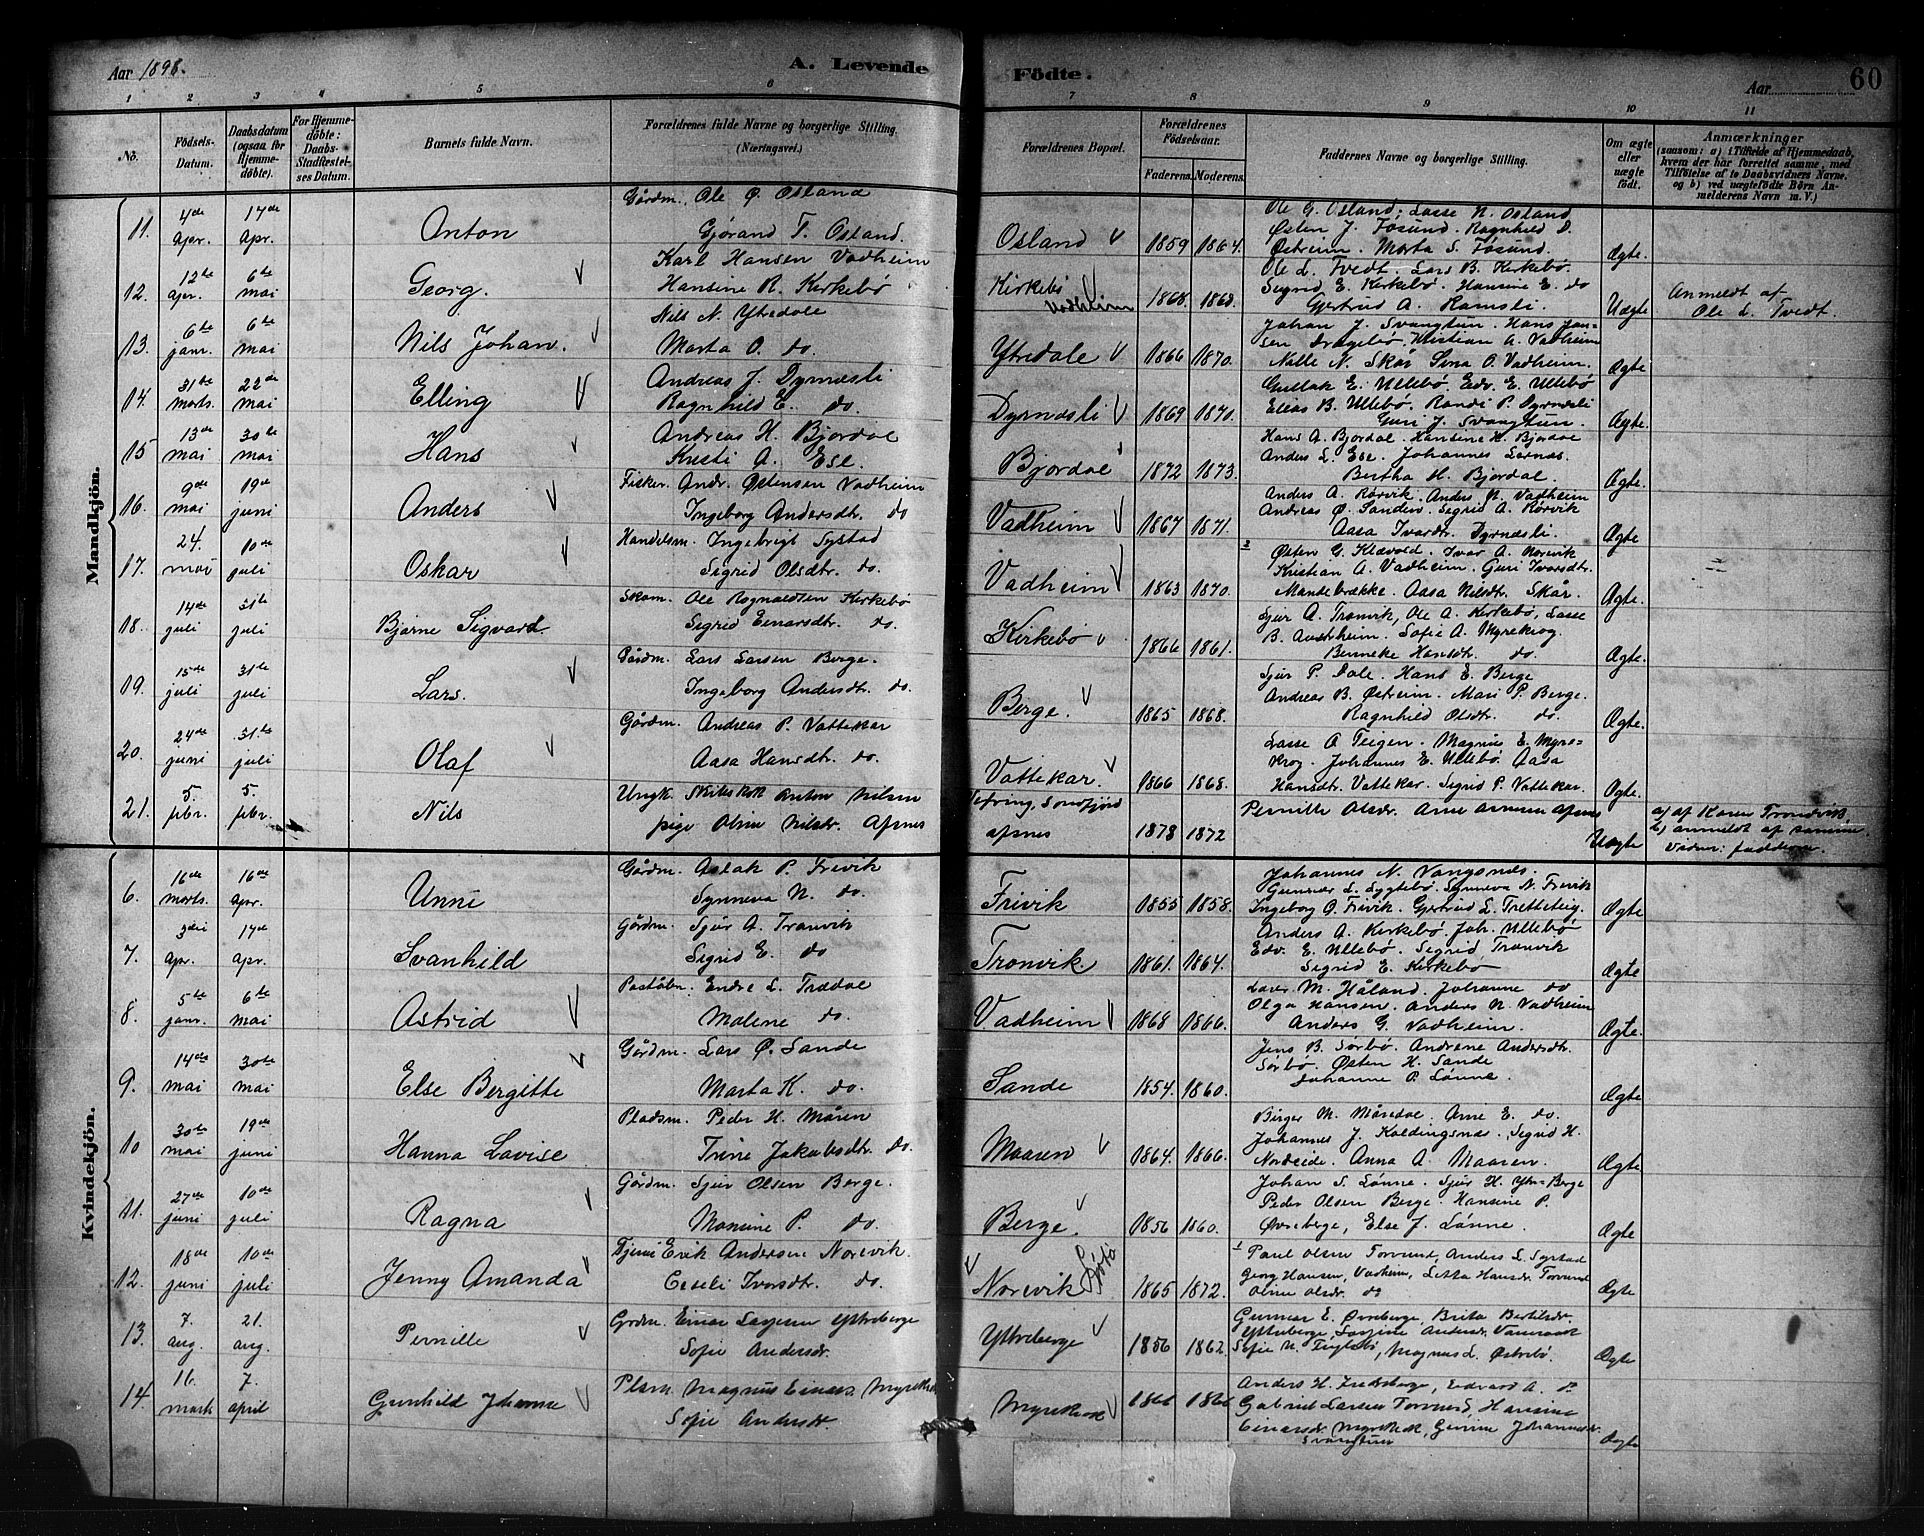 Aar 1898.
A. Levende
Födte.
Aar
60
1 2 3 4 5 6 7 8 9 10 11
No.
Födsels-Datum.
Daabsdatum (ogsaa for Hjemme-döbte).
For Hjemme-döbte: Daabs-Stadfæstel-ses Datum.
Barnets fulde Navn.
Forældrenes fulde Navne og borgerlige Stilling. (Næringsvei.)
Forældrenes Bopæl.
Forældrenes Födselsaar.
Faderens. Moderens.
Faddernes Navne og borgerlige Stilling.
Om ægte eller uægte födt.
Anmærkninger
(saasom: a) i Tilfælde af Hjemmedaab, hvem der har forrettet samme, med Tilföielse af to Daabsvidners Navne. og b) ved uægtefödte Börn Anmelderens Navn m. V.)
Mandkjön.
11. 4de apr. 17de apr. Anton Gårdm. Ole Ø. Osland Gjörand T. Osland. Osland 1859 1864. Ole G. Osland, Lasse N. Osland Østen J. Føsund. Ragnhild D. Østreim. Marta S. Føsund. Ægte.
12. 12te apr. 6te mai Georg. Karl Hansen Vadheim Hansine R. Kirkebø Kirkebø Vadheim 1868. 1868. Ole L. Tvedt. Lars B. Kirkebø. Sigrid E. Kirkebø. Hansine E. do Gjertrud A. Ramsli. Uægte Anmeldt af Ole L. Tvedt.
13. 6te janr. 6te mai Nils Johan. Nils N. Ytredale Marta O. do. Ytredale 1866 1870. Johan J. Svangtun. Hans Jansen Kristian A. Vadheim Nille N. Skår Sina O. Vadheim. Ægte.
14 31te marts. 22de mai Elling Andreas J. Dyrnesli Ragnhild E. do. Dyrnesli 1869 1871. Gullak E. Ullebø. Edv. E. Ullebø Elias B. Ullebø. Randi P. Dyrnesli Guri J. Svangtun. Ægte.
15 13de mai 30te mai Hans Andreas H. Bjordal Kristi A. Ese. Bjordal 1872 1873. Hans A. Bjordal. Hansine H. Bjordal Anders L. Ese. Johannes Bertha H. Bjordal. Ægte.
16. 9de mai 19de juni Anders Fisker. Andr. Østensen Vadheim Ingeborg Andersdtr. do Vadheim 1867 1871. Anders A. Rørvik. Anders N. Vadheim Andreas Ø. Sanden. Sigrid A. Rørvik Aasa Ivardtr. Dyrnesli. Ægte
17. 24. mai 10de juli Oskar Handelsm. Ingebrigt Systad Sigrid Olsdtr. do. Vadheim 1863 1870. Østen G. Klævold. Ivar A. Norevik Kristian A. Vadheim. Guri Ivarsdtr. Mandebrække. Aasa Nilsdtr. Skår. Ægte.
18. 14de juli 31te juli Bjarne Sigvard. Skom. Ole Rognaldsen Kirkebø Sigrid Einarsdtr. do. Kirkebø 1866 1861. Sjur A. Tronvik, Ole A. Kirkebø, Lasse B. Austrheim. Sofie A. Myrekrog Benneke Hansdtr. do. Ægte.
19. 15de juli 31te juli Lars. Gårdm. Lars Larsen Berge. Ingeborg Andersdtr. do. Berge. 1865 1868. Sjur P. Dale. Hans E. Berge Andreas B. Østreim. Mari P. Berge. Ragnhild Olsdtr. do. Ægte.
20. 24de juni 31te juli Olaf Gårdm. Andreas P. Vattekar Aasa Hansdtr. do. Vattekar. 1866 1868. Lasse A Teigen. Magnus E. Myrekrog. Johannes E. Ullebø. Aasa Hansdtr. Vattekar. Sigrid P. Vattekar. Ægte.
21. 5. febr. 5. febr. Nils Ungk. Anton Nilsen pige Oline Nilsdr. Apnes Vefring, Sondfjord apnes 1878 1872 Pernille Olsdr. Arne apnes Uægte a) af Karen Trondvik, b) anmeldt af samme. Vidner: fadderne.
Kvindekjön.
6. 16de marts. 16de apr. Unni Gårdm. Aslak P. Frivik Synneva N. do. Frivik 1855 1858. Johannes N. Vangsnes. Gunnar L. Sygtebø. Synneva N. Frivik Ingeborg O. Frivik. Gjertrud L. Tretteteig. Ægte
7. 3die apr. 17de apr. Svanhild Gårdm. Sjur A. Tronvik Sigrid E. do Tronvik. 1861. 1864. Anders A. Kirkebø. Joh. Ullebø Edv. E. Ullebø. Sigrid Tronvik Sigrid E. Kirkebø Ægte
8. 5te janr. 6te mai Astrid Poståbn. Endre L. Trædal Malene do. Vadheim 1868 1866. M. Håland. Johanne do Olga Hansen. Anders N. Vadheim Anders G. Vadheim. Ægte.
9. 14de mai 30te mai Else Bergitte Gårdm. Lars Ø. Sande Marta K. do. Sande 1854. 1860. Jens B. Sørbø. Andrene Andersdtr. Sørbø. Østen H. Sande Johanne P. Lønne. Ægte
10 30te mai 19de juni Hanna Lavise Pladsm. Peder H. Måren Trine Jakobsdtr. do. Maaren 1864. 1866. Birger M. Måredal. Arne E. do. Johannes J. Koldingsnes. Sigrid H. Nordeide. Anna A. Maaren. Ægte
11. 27de juni 10de juli Ragna Gårdm. Sjur Olsen Berge. Monsine P. do. Berge. 1856 1860. Johan S. Lønne. Sjur H. Ytre Berge Peder Olsen Berge. Hansine P. Øvreberge, Else J. Lønne. Ægte
12. 18de juni 10de juli Jenny Amanda Erik Andersen Norevik. Ceseli Ivarsdtr. do. Norevik 1865 1872. Paul Olsen Torvund, Anders L. Systad Georg Hansen, Vadheim, Hansdr. Torvund Oline Olsdr. do Ægte
13. 7. aug. 21. aug. Pernille Grdm. Einar Ytreberge Sofie Andersdr. Ytreberge 1856 1862. Gunnar E. Øvreberge, Brita Bertilsdr. Ytreberge, Andersdr. Sofie N. Magnus L. Østrebø. Ægte
14. 16. mark 7. april Gunhild Johanne Plsm. Magnus Einars. Myrekrok Sofie Andersdr. Myrekrok 1866 1866 Anders H. Edvard A. do Gabriel Larsen Torvund, Hansine Einarsdr. Myrekrok, Johannesdr. Svangtun Ægte